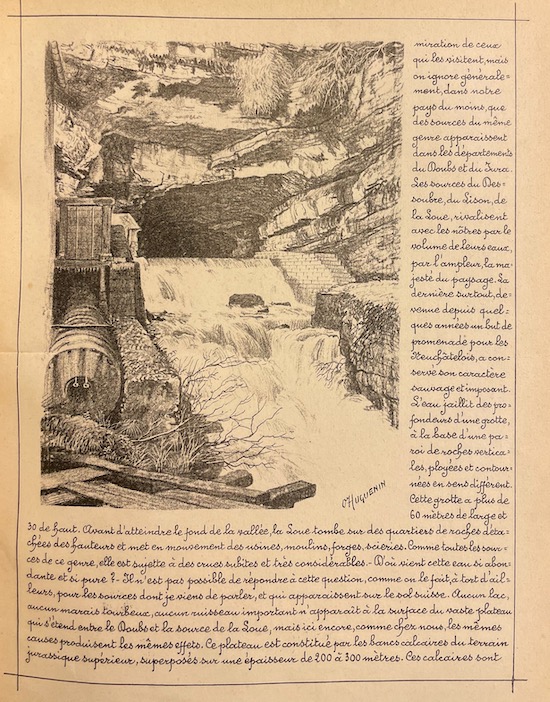 miration de ceux
qui les visitent, mais
on ignore générale=
ment, dans notre
pays du moins, que
des sources du même
genre apparaissent
dans les départements
du Doubs et du Jura.
Les sources du Des=
soubre, du Lison, de
la Loue, rivalisent
avec les nôtres par le
volume de leurs eaux,
par l'ampleur, la ma=
jesté du paysage. La
dernière surtout, de=
venue depuis quel=
ques années un but de
promenade pour les
Neuchâtelois, a con=
servé son caractère
sauvage et imposant.
L'eau jaillit des pro=
fondeurs d'une grotte,
à la base d'une pa=
roi de roches vertica=
les, ployées et contour=
nées en sens différent.
Cette grotte a plus de
60 mètres de large et
C. HUGUENIN
30 de haut. Avant d'atteindre le fond de la vallée, la Loue tombe sur des quartiers de roches déta=
chées des hauteurs et met en mouvement des usines, moulins, forges, scieries. Comme toutes les sour=
ces de ce genre, elle est sujette à des crues subites et très considérables. - D'où vient cette eau si abon=
dante et si pure? - Il n'est pas possible de répondre à cette question, comme on le fait, à tort d'ail=
leurs, pour les sources dont je viens de parler, et qui apparaissent sur le sol suisse. Aucun lac,
aucun marais tourbeux, aucun ruisseau important n'apparaît à la surface du vaste plateau
qui s'étend entre le Doubs et la source de la Loue, mais ici encore, comme chez nous, les mêmes
causes produisent les mêmes effets. Ce plateau est constitué par les bancs calcaires du terrain
jurassique supérieur, superposés sur une épaisseur de 200 à 300 mètres. Ces calcaires sont